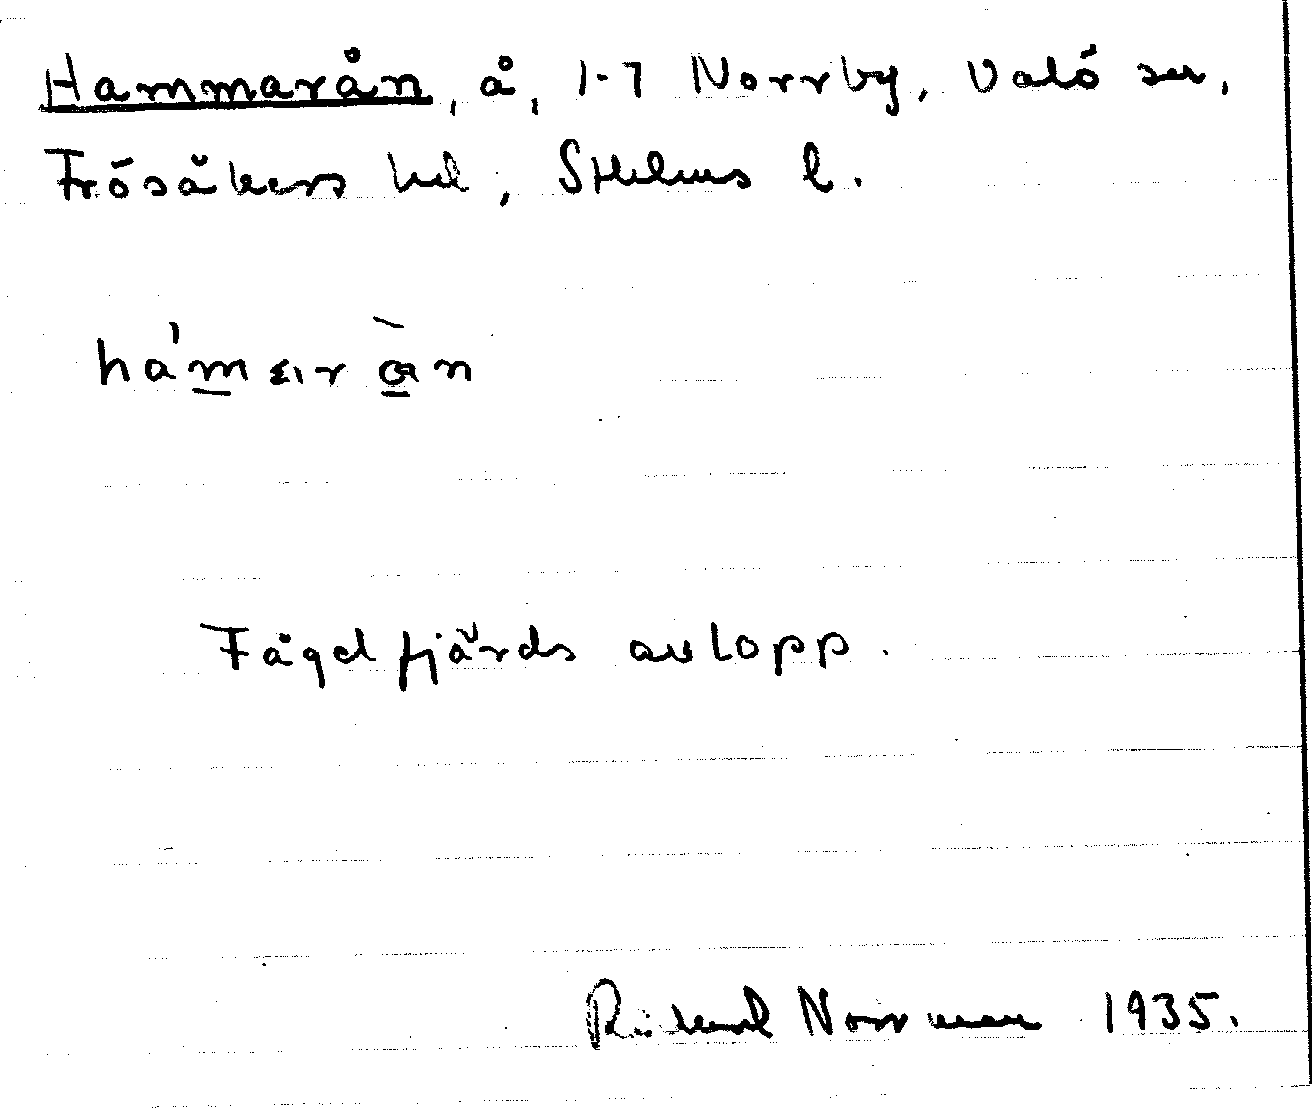 Hammarån, å, 1-7 Norrby, Valö sn,
Frösåkers hd, Sthlms l.
hámαrὰn
Fågelfjärds avlopp.
Rickard Norrman 1935.